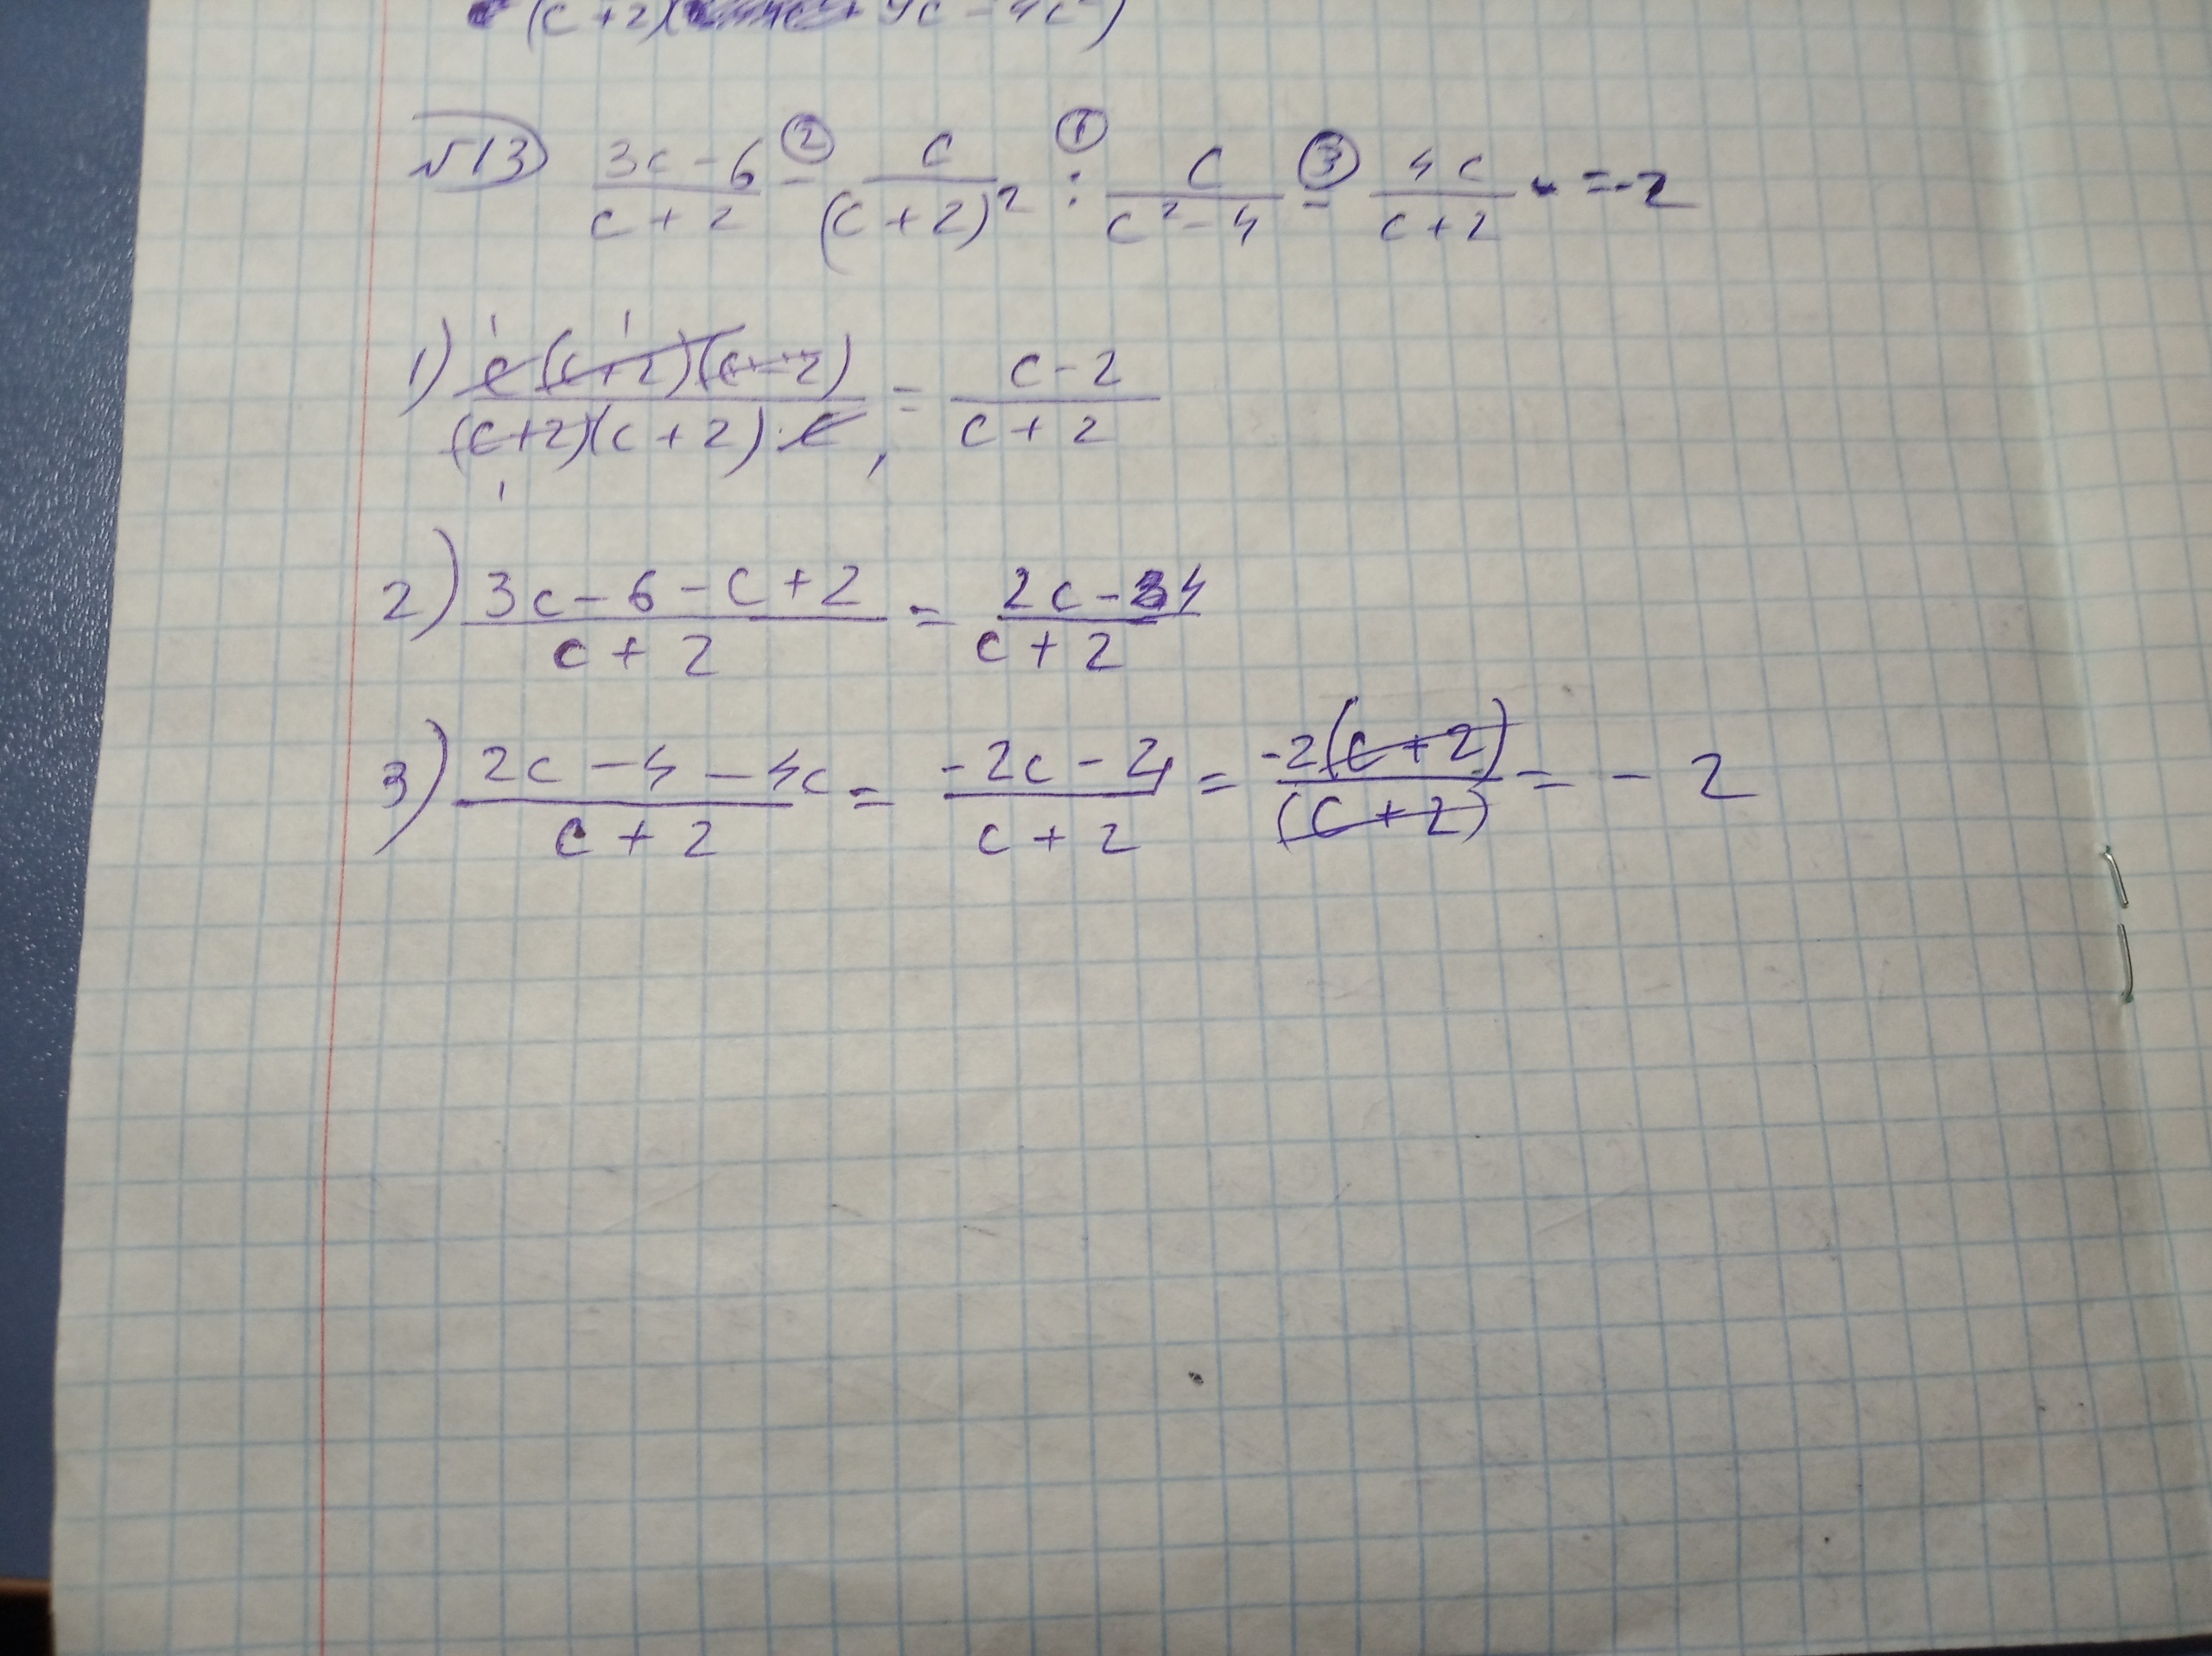 (c+2)( + 4c - 4c )
√13) (3c-6)/(c+2) ② - c/(c+2)² ① : c/(c²-4) ③ - 4c/(c+2) = -2
1) c(c+2)(c-2)/((c+2)(c+2)·c) = (c-2)/(c+2)
2) (3c-6-c+2)/(c+2) = (2c-4)/(c+2)
3) (2c-4-4c)/(c+2) = (-2c-4)/(c+2) = -2(c+2)/(c+2) = -2